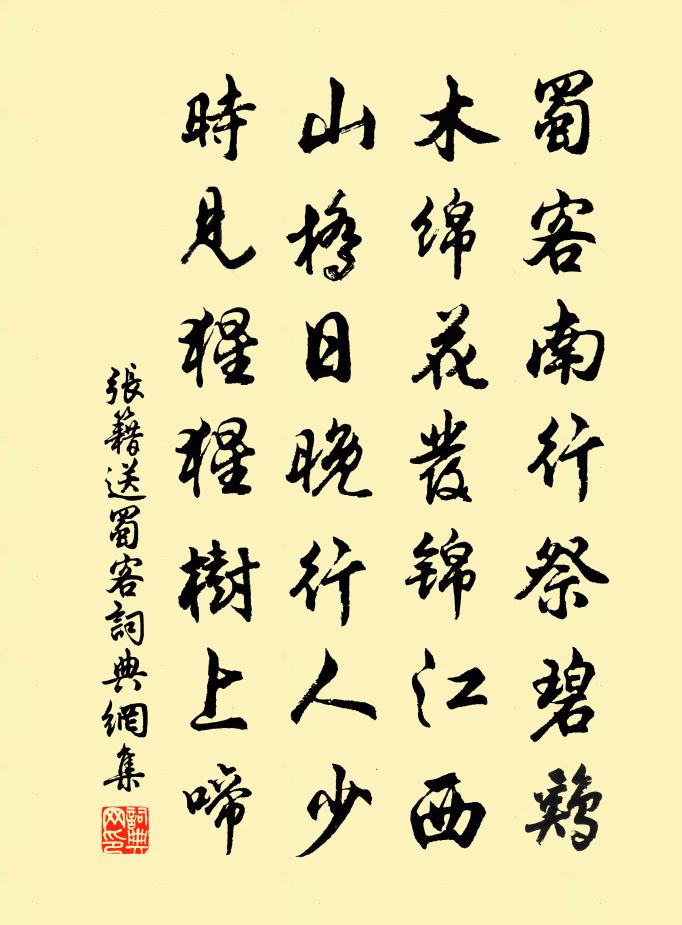 蜀客南行祭碧鸡
木绵花發锦江西
山橋日晚行人少
時見猩猩樹上啼
張籍送蜀客詞典網集
詞典网印